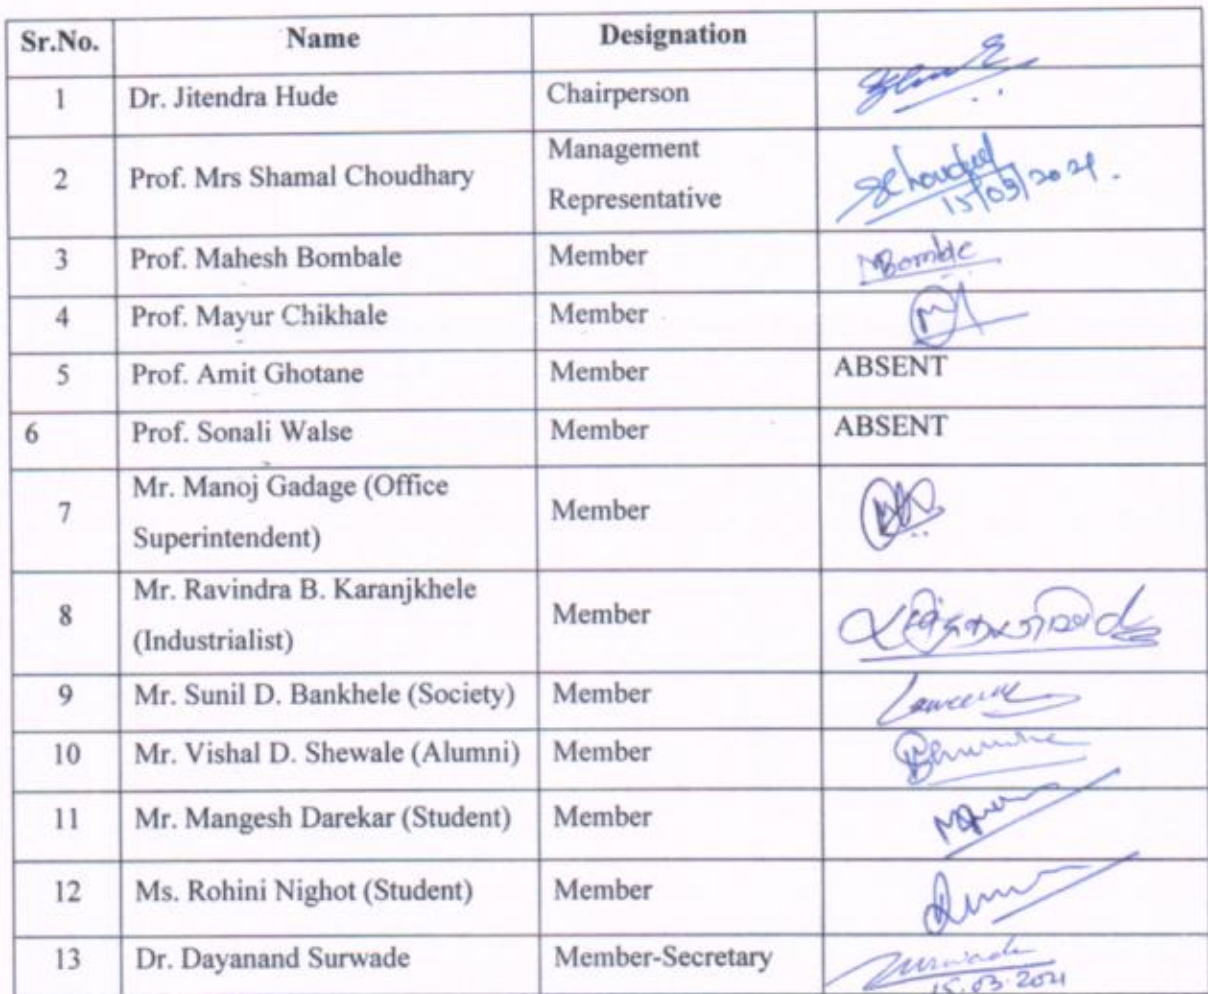 Sr.No. Name Designation
1 Dr. Jitendra Hude Chairperson
2 Prof. Mrs Shamal Choudhary Management
Representative
15/03/2021.
3 Prof. Mahesh Bombale Member
4 Prof. Mayur Chikhale Member
5 Prof. Amit Ghotane Member ABSENT
6 Prof. Sonali Walse Member ABSENT
7 Mr. Manoj Gadage (Office
Superintendent) Member
8 Mr. Ravindra B. Karanjkhele
(Industrialist) Member
9 Mr. Sunil D. Bankhele (Society) Member
10 Mr. Vishal D. Shewale (Alumni) Member
11 Mr. Mangesh Darekar (Student) Member
12 Ms. Rohini Nighot (Student) Member
13 Dr. Dayanand Surwade Member-Secretary
15.03.2021